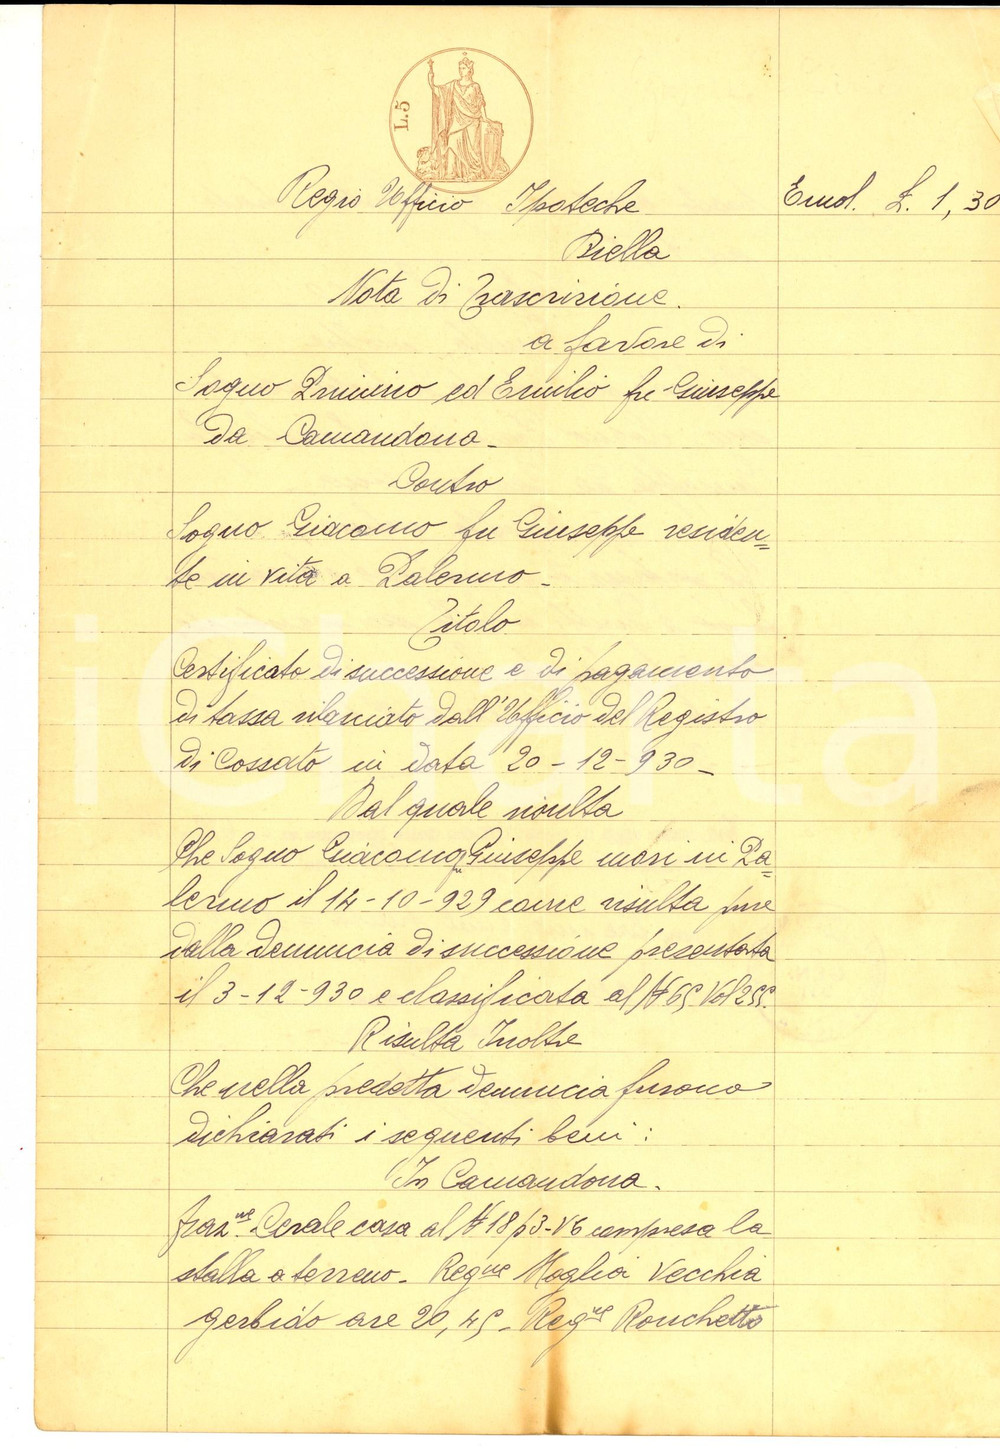 L.5
Regio Ufficio Ipoteche
Emol. £. 1,30
Biella
Nota di Trascrizione.
a favore di
Sogno Primino ed Emilio fu Giuseppe
da Camandona -
Contro
Sogno Giacomo fu Giuseppe residen=
te in vita a Palermo -
Titolo
Certificato di successione e di pagamento
di tassa rilasciato dall'Ufficio del Registro
di Cossato in data 20-12-930 -
Dal quale risulta
Che Sogno Giacomo fu Giuseppe morì in Pa=
lermo il 14-10-929 come risulta pure
dalla denuncia di successione presentata
il 3-12-930 e classificata al N 65 Vol 255.
Risulta Inoltre
Che nella predetta denuncia furono
dichiarati i seguenti beni:
In Camandona.
fraz.ne Cerale casa al N 18 p3-V6 compresa la
stalla a terreno - Reg.ne Moglia Vecchia
gerbido are 20,45 - Reg.ne Ronchetto
iCharta